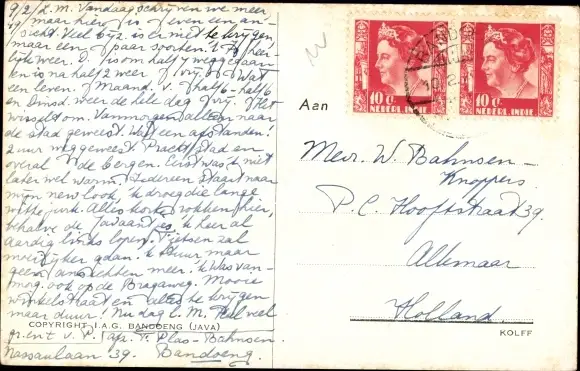 9/2/L.M. Vandaag schrijven we meer
maar hier is of even een an-
sicht. Veel byz. is er niet te krijgen
maar een paar soorten. 't Is heer-
lijk weer. D. is om half 7 weggegaan
en is na half 2 weer vrij. Wat
een leven. Maand. v. half 6 - half 6
en Dinsd. weer de hele dag vrij. Het
wisselt om. Vanmorgen alleen naar
de stad geweest. Wat een afstanden!
2 uur weggeweest. Prachtstad en
overal de bergen. Eerst was 't niet
later wel warm. Iedereen staart naar
mijn new look, 'k droeg die lange
witte jurk. Alles korte rokken hier,
behalve de Javaantjes. 'k Leer al
aardig links lopen. Fietsen zal
moeilijker gaan. 'k Stuur maar
geen ansichten meer. 'k Was van-
morg. ook op de Bragaweg. Mooie
winkelstraat en alles te krijgen
maar duur! Nu dag L.M. Heel veel
gr. ent v. P. Plas-Bahnsen.
Nassaulaan 39. Bandoeng.
COPYRIGHT I.A.G. BANDOENG (JAVA)
10 c. NEDERL. INDIE
10 c. NEDERL. INDIE
Aan
Mevr. W. Bahnsen-
Knoppers.
P.C. Hooftstraat 39.
Alkmaar
Holland
KOLFF